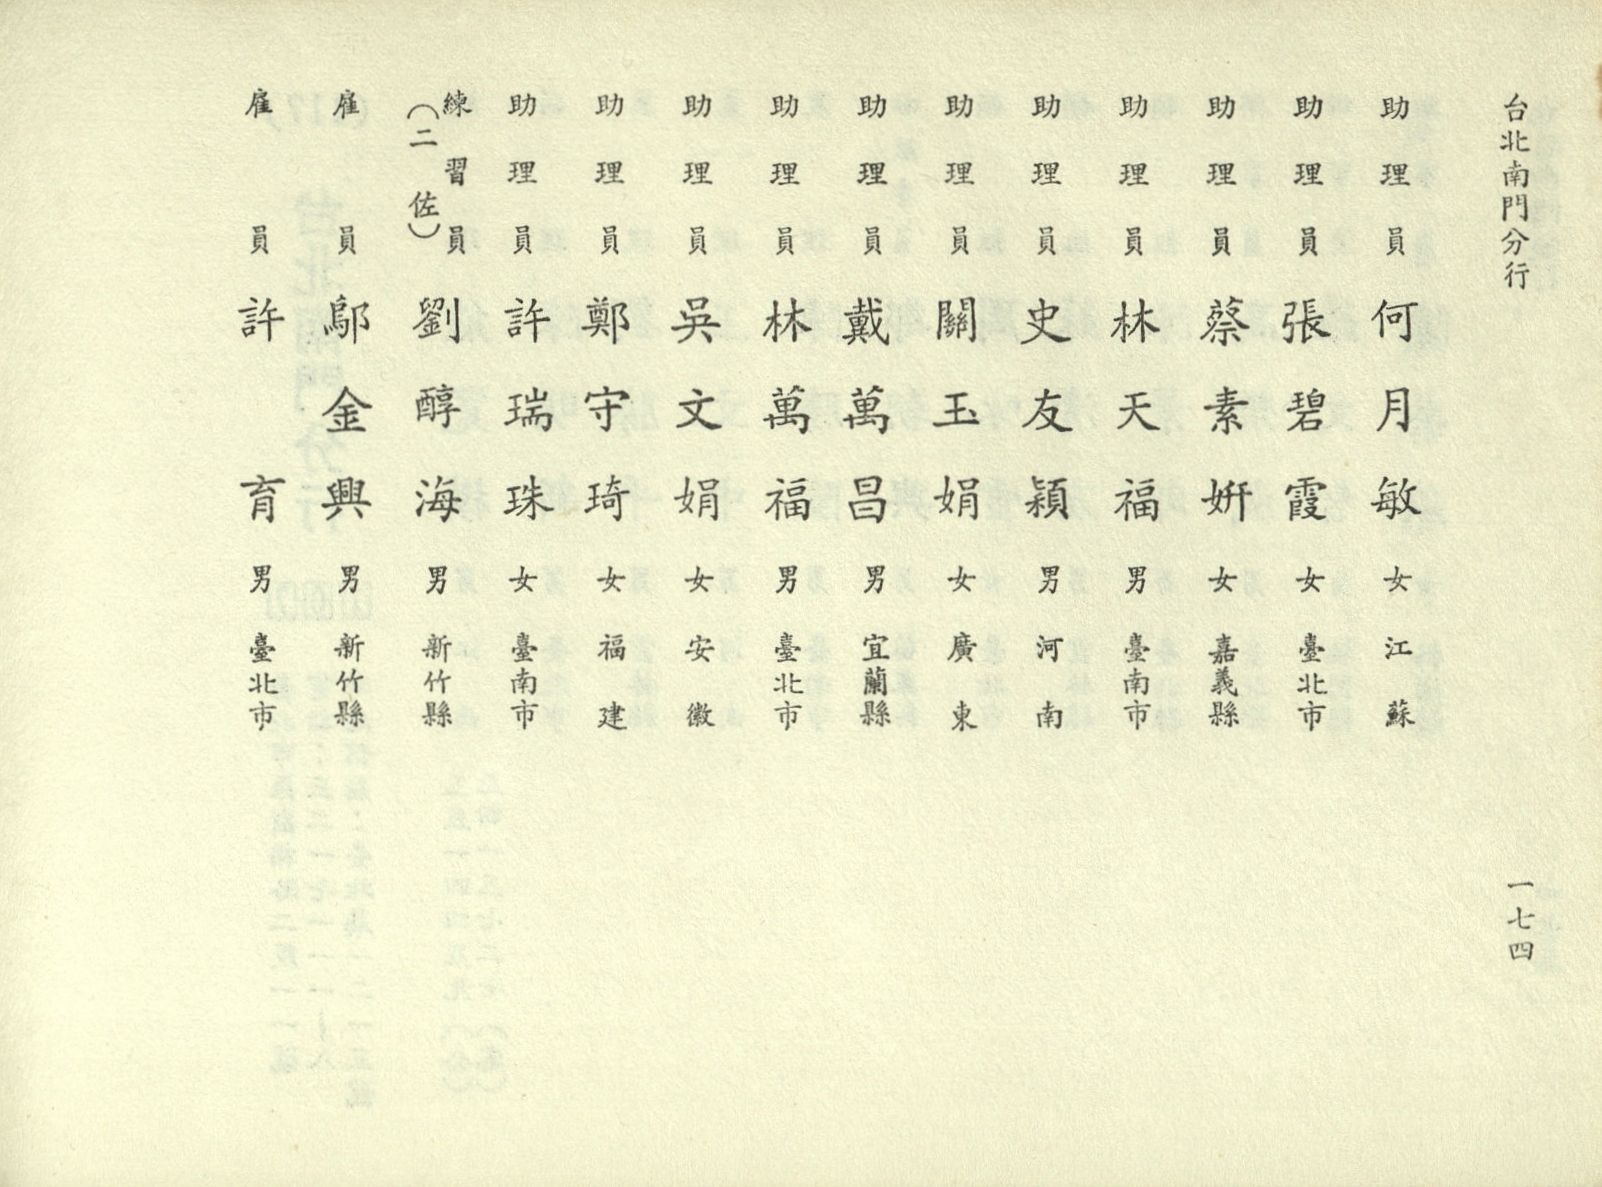 台北南門分行 一七四
助理員 何月敏 女 江蘇
助理員 張碧霞 女 臺北市
助理員 蔡素姸 女 嘉義縣
助理員 林天福 男 臺南市
助理員 史友潁 男 河南
助理員 關玉娟 女 廣東
助理員 戴萬昌 男 宜蘭縣
助理員 林萬福 男 臺北市
助理員 吳文娟 女 安徽
助理員 鄭守琦 女 福建
助理員 許瑞珠 女 臺南市
練習員(二佐) 劉醇海 男 新竹縣
雇員 鄔金興 男 新竹縣
雇員 許育 男 臺北市